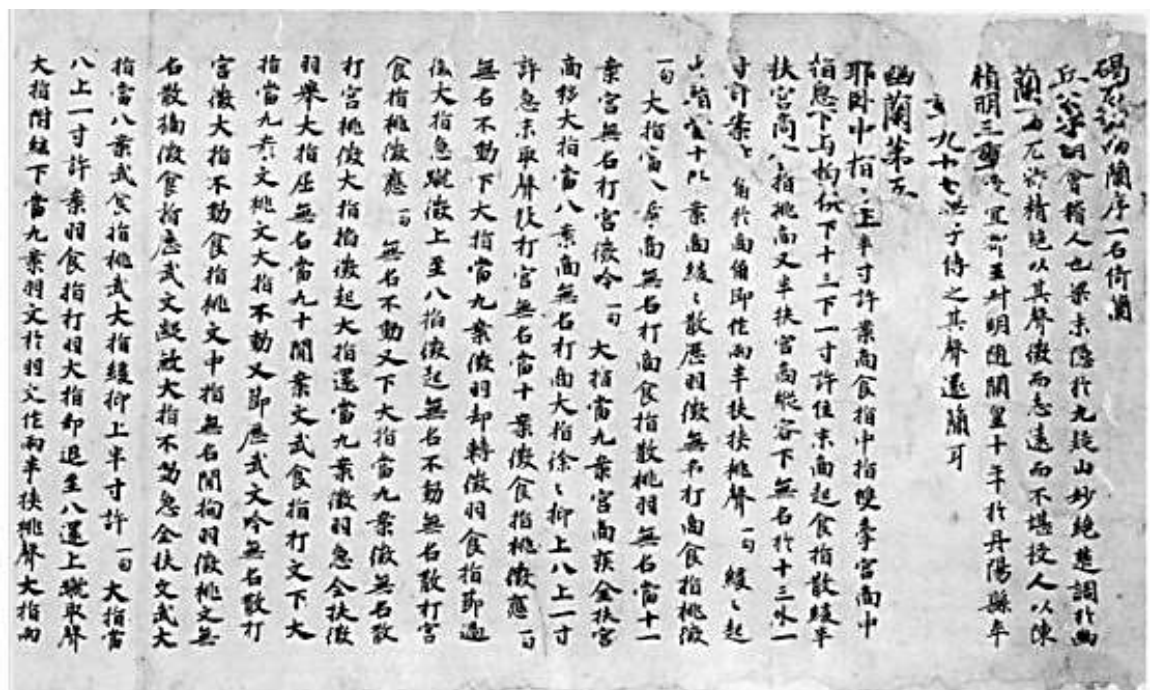 碣石調幽蘭序一名倚蘭
丘公字明會稽人也梁末隱於九疑山妙絕楚調於幽
蘭一曲尤特精絕以其聲微而志遠而不堪授人以陳
禎明三年授宜都王叔明隨開皇十年於丹陽縣卒
年九十七無子傳之其聲遂簡耳
幽蘭第五
耶卧中指〻十半寸許案商食指中指雙牽宮商中
指急下与拘俱下十三下一寸許住末商起食指散緩半
扶宮商食指挑商又半扶宮商縱容下無名於十三外一
寸許案〻角於商角即作兩半扶挾挑聲一句 緩〻起
案商緩〻散歷羽徵無名打商食指挑徵
一句 大指當八案商無名打商食指散挑羽無名當十一
案宮無名打宮徵吟一句 大指當九案宮商疾全扶宮
商移大指當八案商無名打商大指徐〻抑上八上一寸
許急末取聲散打宮無名當十案徵食指挑徵應一句
無名不動下大指當九案徵羽却轉徵羽食指節過
徵大指急蹴徵上至八掐徵起無名不動無名散打宮
食指挑徵應一句 無名不動又下大指當九案徵無名散
打宮桃徵大指掐徵起大指還當九案徵羽急全扶徵
羽舉大指屈無名當九十間案文武食指打文下大
指當九案文挑文大指不動又節歷武文吟無名散打
宮徵大指不動食指挑文中指無名間拘羽徵挑文無
名散摘徵食指應武文大指不動急全扶文武大
指當八案武食指挑武大指緩抑上半寸許一句 大指當
八上一寸許案羽食指打羽大指却退至八還上蹴取聲
大指附絃下當九案羽文於羽文作兩半扶挾挑聲大指兩